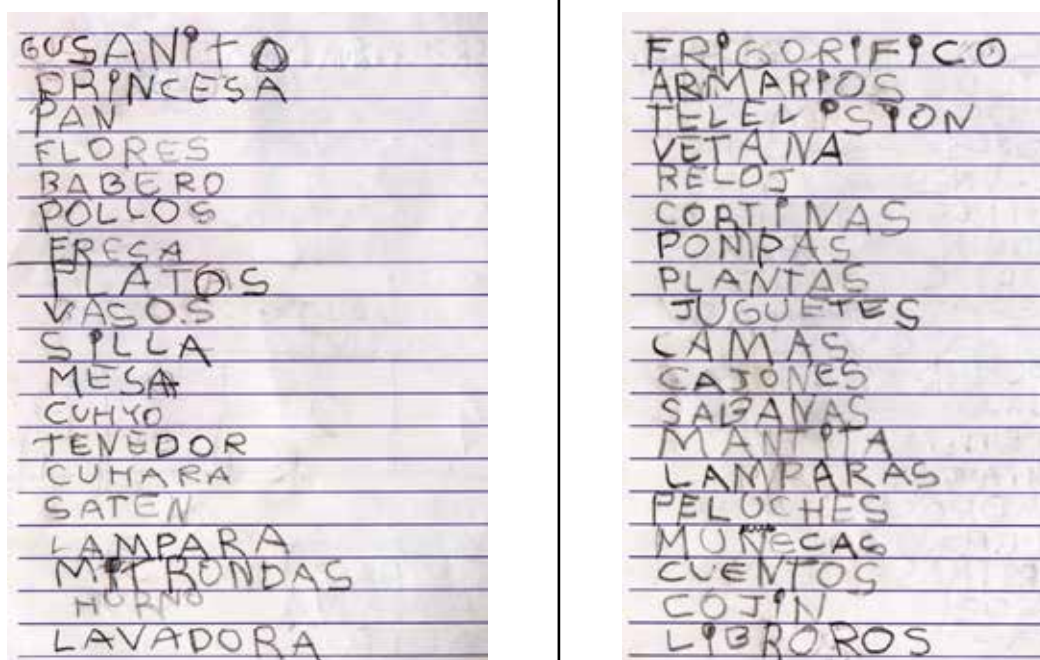 GUSANITO
PRINCESA
PAN
FLORES
BABERO
POLLOS
FRESA
PLATOS
VASOS
SILLA
MESA
CUHYO
TENEDOR
CUHARA
SATEN
LAMPARA
MICRONDAS
HORNO
LAVADORA
FRIGORIFICO
ARMARIOS
TELELVISION
VETANA
RELOJ
CORTINAS
POMPAS
PLANTAS
JUGUETES
CAMAS
CAJONES
SABANAS
MANTITA
LAMPARAS
PELUCHES
MUÑECAS
CUENTOS
COJIN
LIBROROS